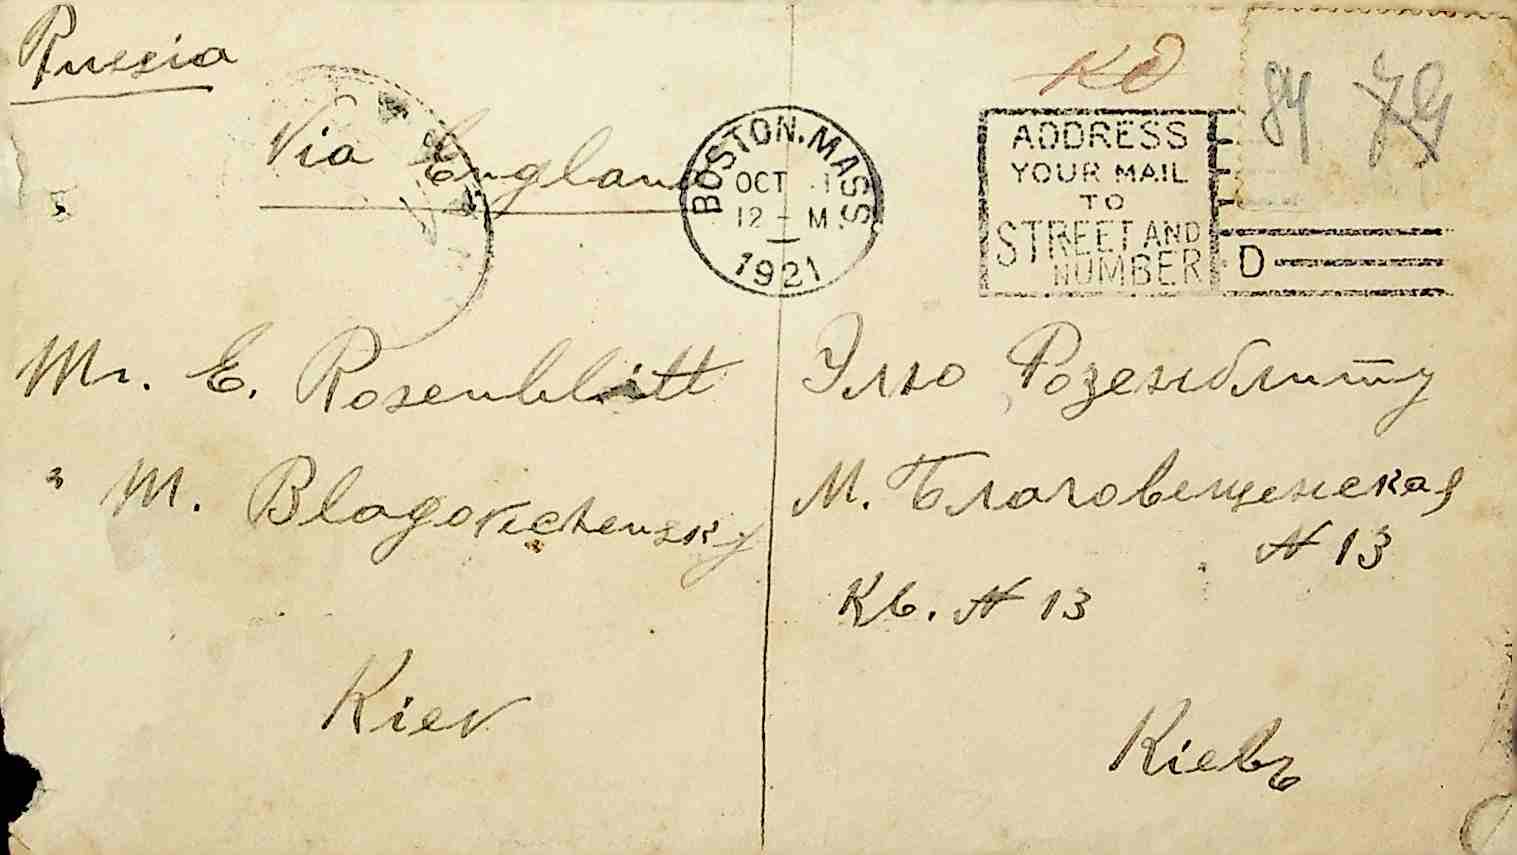 Russia
Via England
BOSTON, MASS
OCT 1
12 - M
1921
ADDRESS
YOUR MAIL
TO
STREET AND
NUMBER
D
84
Mr. E. Rosenblitt
" M. Blagovichensky
Kiev
Элю Розенблиту
М. Благовещенская
№ 13
Кв. № 13
Кіевъ